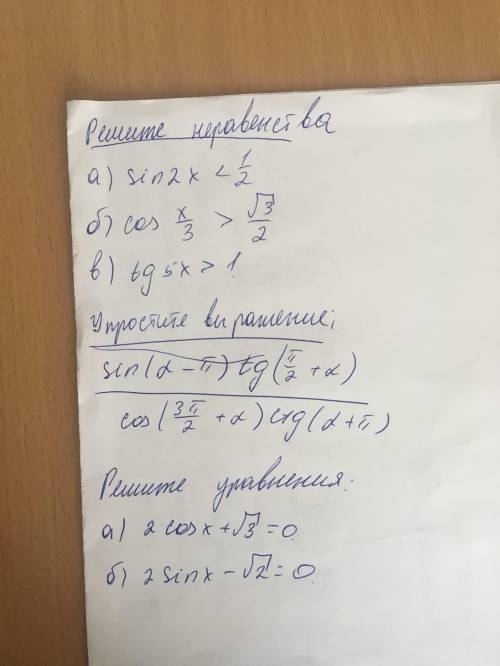 Решите неравенства
а) sin2x < 1/2
б) cos x/3 > √3/2
в) tg5x > 1.
Упростите выражение;
sin(α - π) tg(π/2 + α)
cos(3π/2 + α) ctg(α + π)
Решите уравнения:
а) 2cosx + √3 = 0.
б) 2sinx - √2 = 0.